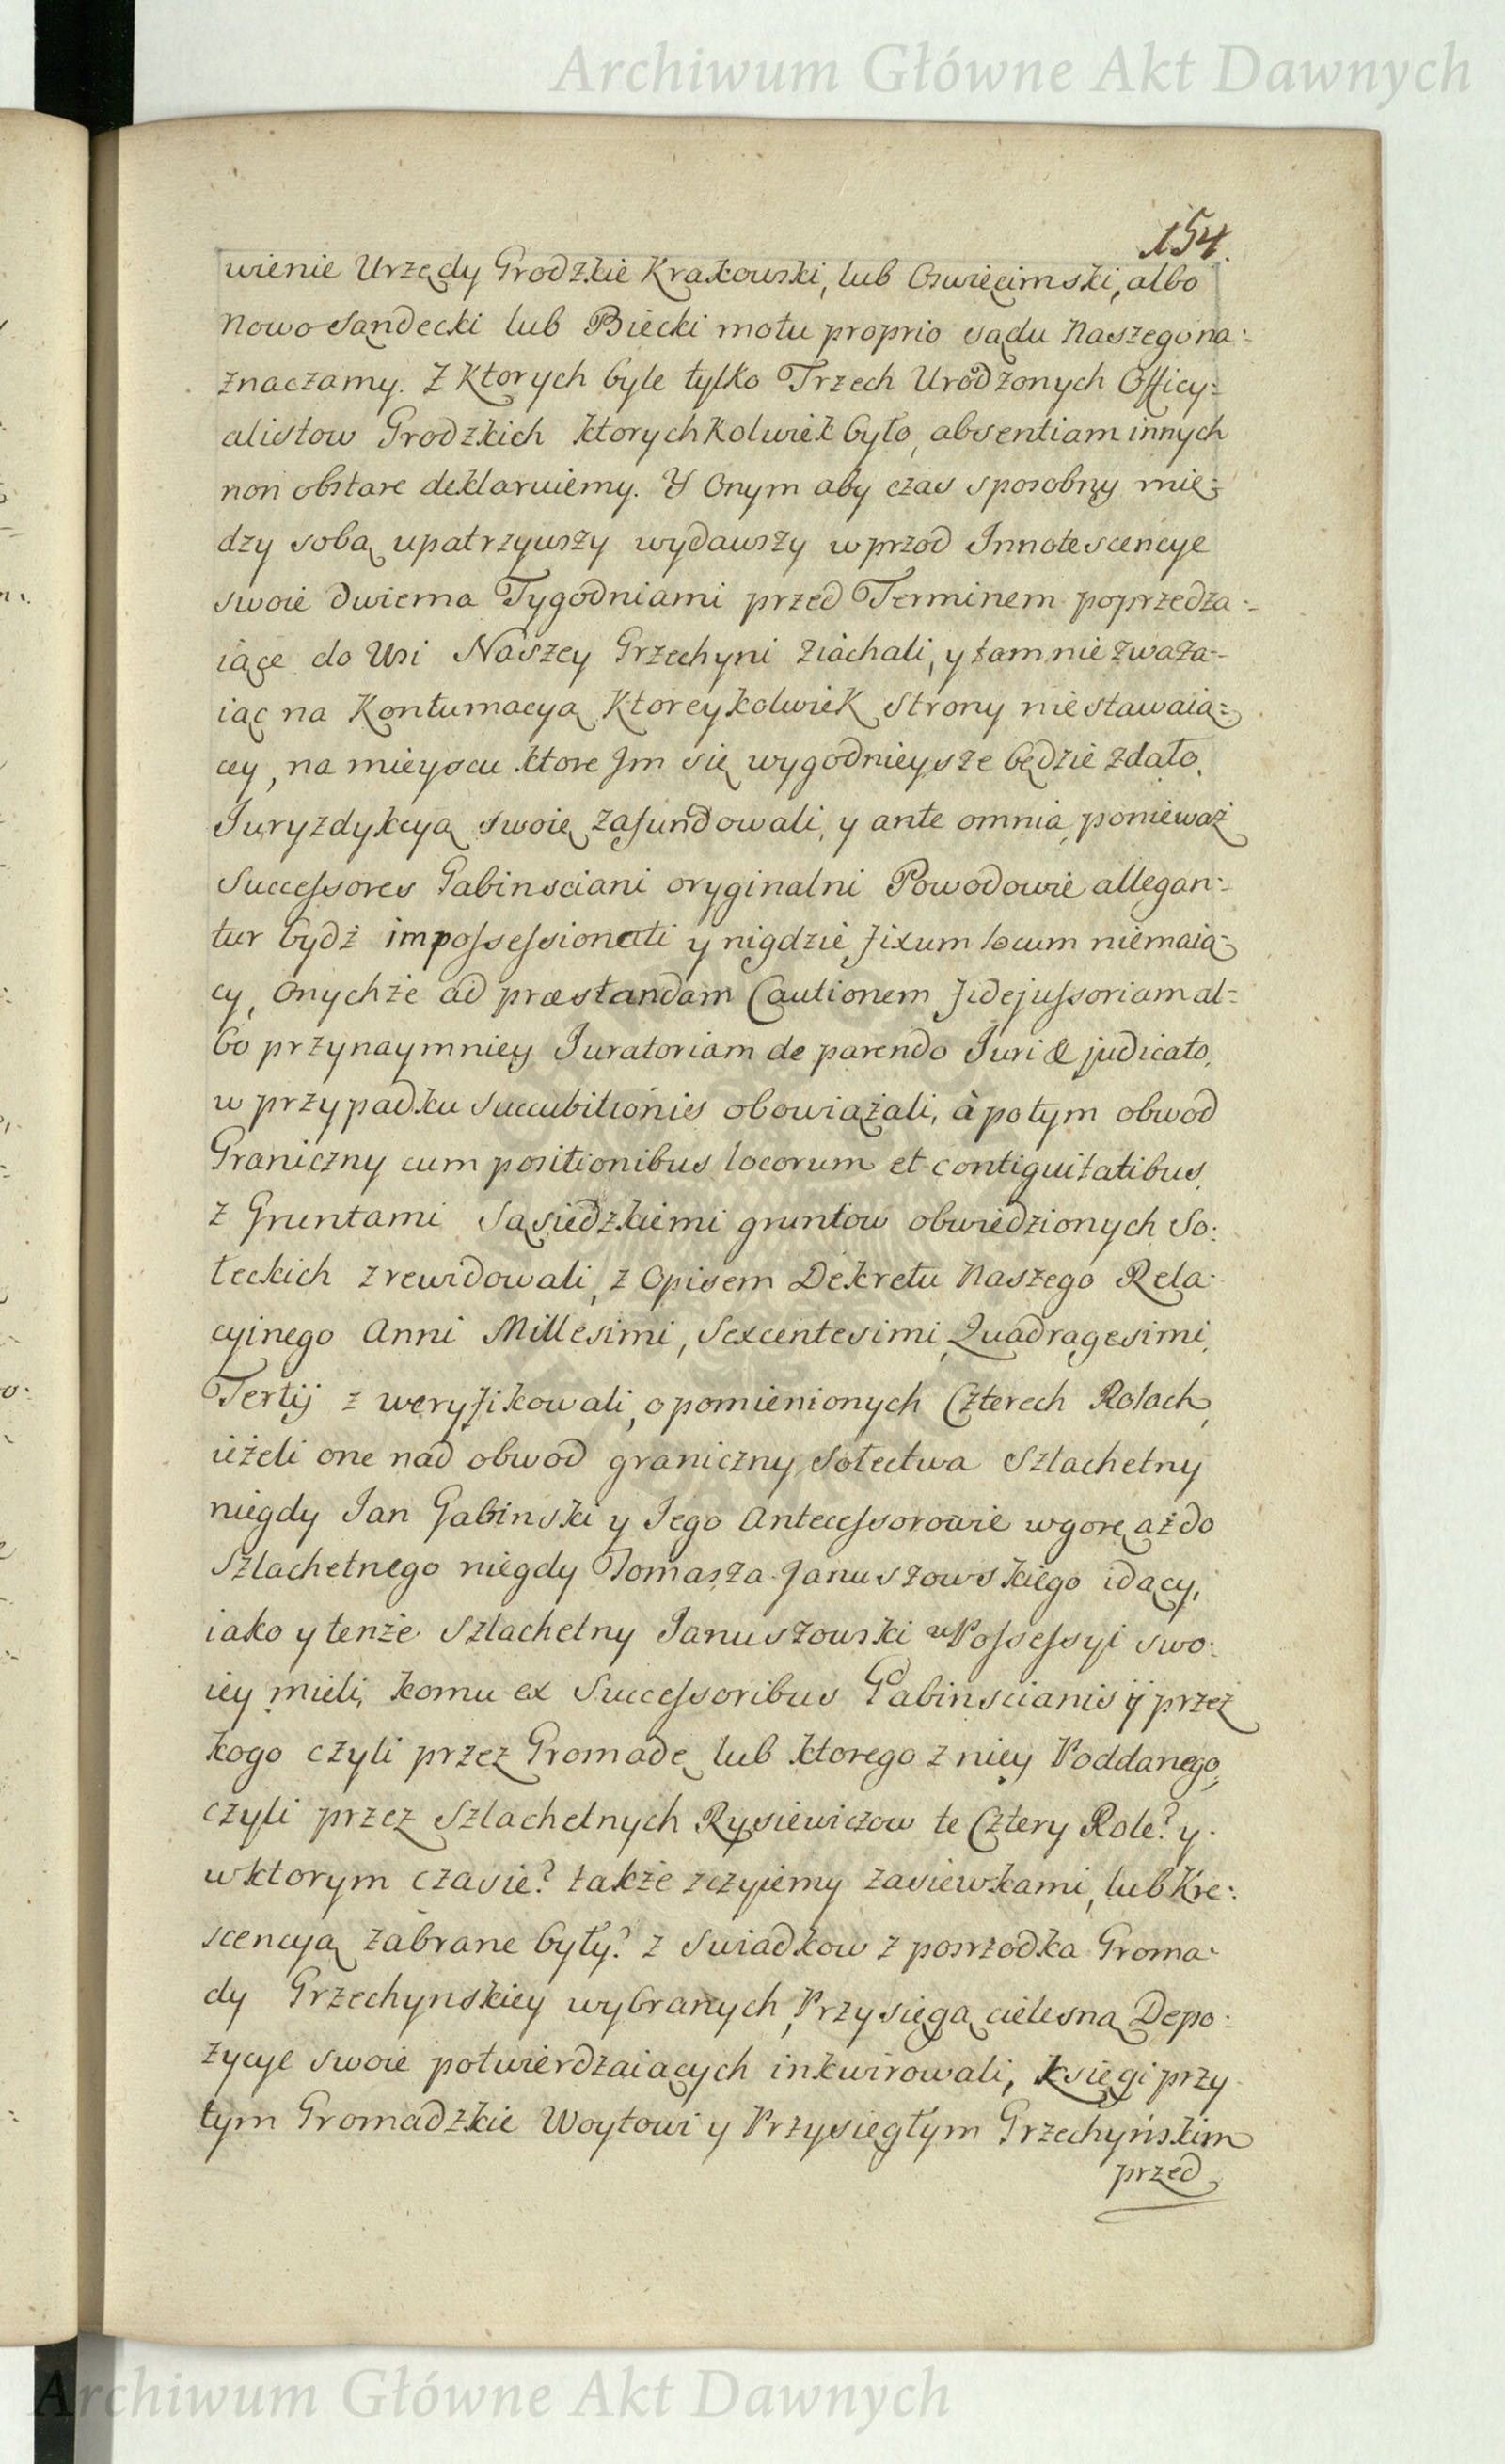 Archiwum Główne Akt Dawnych
154.
wienie Urzędy Grodzkie Krakowski, lub Oswięcimski, albo
Nowo Sandecki lub Biecki motu proprio sądu Naszego na-
znaczamy. Z Ktorych byle tylko Trzech Urodzonych Officy-
alistow Grodzkich ktorychkolwiek było, absentiam innych
non obstare deklaruiemy. Y Onym aby czas sposobny mię-
dzy sobą upatrzywszy wydawszy wprzod Innotescencye
swoie dwiema Tygodniami przed Terminem poprzedza-
iące do Wsi Naszey Grzechyni ziachali, y tam nie zwaza-
iąc na Kontumacyą Ktoreykolwiek Strony nie stawaią-
cey, na mieyscu ktore Jm się wygodnieysze będzie zdało,
Juryzdykcyą swoię zafundowali, y ante omnia, ponieważ
Successores Gabinsciani oryginalni Powodowie allegan-
tur bydź impossessionati y nigdzie fixum locum niemaią-
cy, Onychże ad præstandam Cautionem fidejussoriam al-
bo przynaymniey Juratoriam de parendo Juri & judicato,
w przypadku succubitionis obowiązali, à potym obwod
Graniczny cum positionibus locorum et contiguitatibus
z Gruntami Sąsiedzkiemi gruntow obwiedzionych So-
łeckich zrewidowali, z Opisem Dekretu Naszego Rela-
cyinego Anni Millesimi, Sexcentesimi, Quadragesimi,
Tertij zweryfikowali, o pomienionych Czterech Rolach,
ieżeli one nad obwod graniczny Sołectwa Szlachetny
niegdy Jan Gabinski y Jego Antecessorowie wgorę aż do
Szlachetnego niegdy Tomasza Januszowskiego idący,
iako y tenże Szlachetny Januszowski w Possessyi swo-
iey mieli, komu ex Successoribus Gabinscianis ÿ przez
kogo czyli przez Gromadę lub ktorego z niey Poddanego,
czyli przez Szlachetnych Rysiewiczow te Cztery Role? y
wktorym czasie? także zczyiemy zasiewkami, lub Kre-
scencyą zabrane były? z Swiadkow z posrzodka Groma-
dy Grzechynskiey wybranych, Przysięgą cielesną Depo-
zycye swoie potwierdzaiących inkwirowali, księgi przy
tym Gromadzkie Woytowi y Przysięgłym Grzechyńskim
przed
Archiwum Główne Akt Dawnych